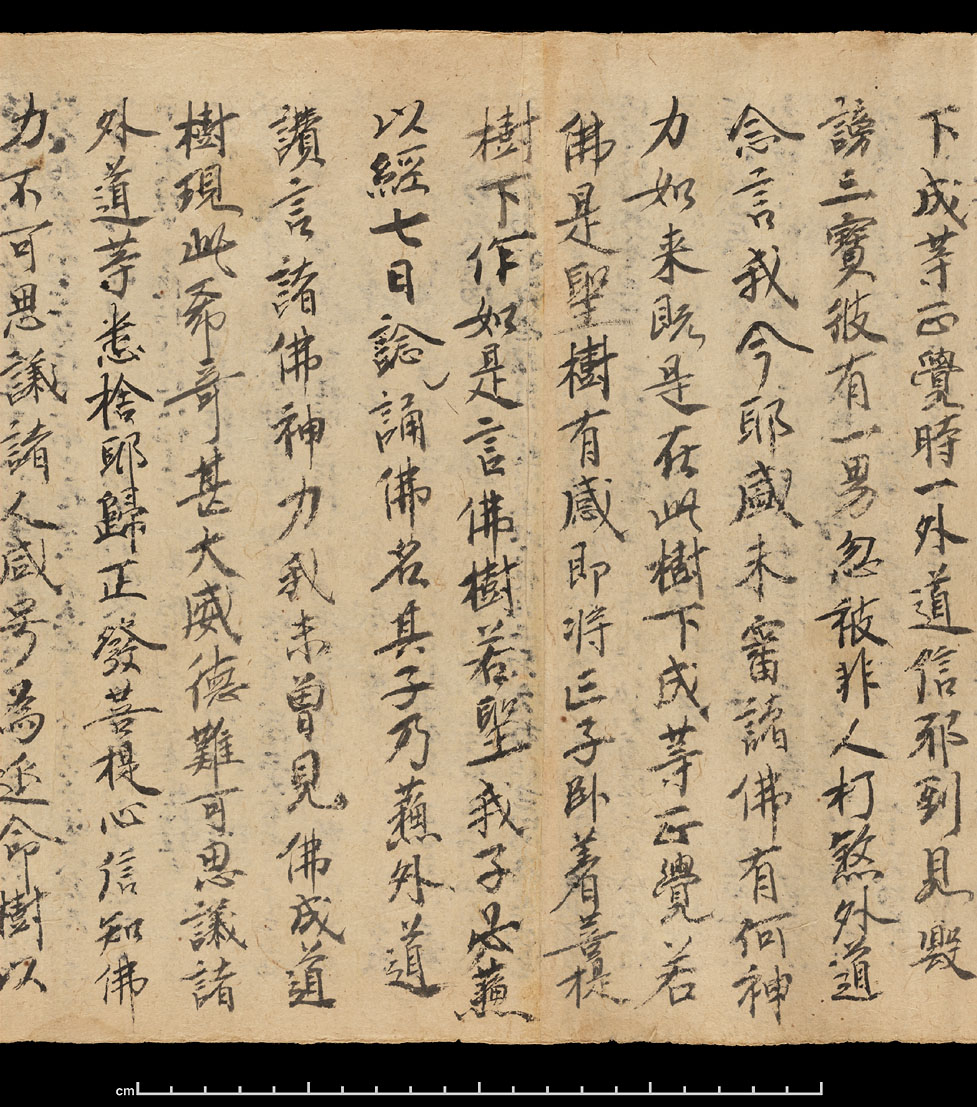 下成等正覺時一外道信邪到見毀
謗三寶彼有一男忽被非人打煞外道
念言我今耶盛未審諸佛有何神
力如来既是在此樹下成等正覺若
佛是聖樹有感即将亡子卧着菩提
樹下作如是言佛樹若聖我子必蘇
以經七日諗誦佛名其子乃蘇外道
讚言諸佛神力我未曾見佛成道
樹現此希奇甚大威德難可思議諸
外道等悉捨耶歸正發菩提心信知佛
力不可思議諸人咸号為延命樹以
cm